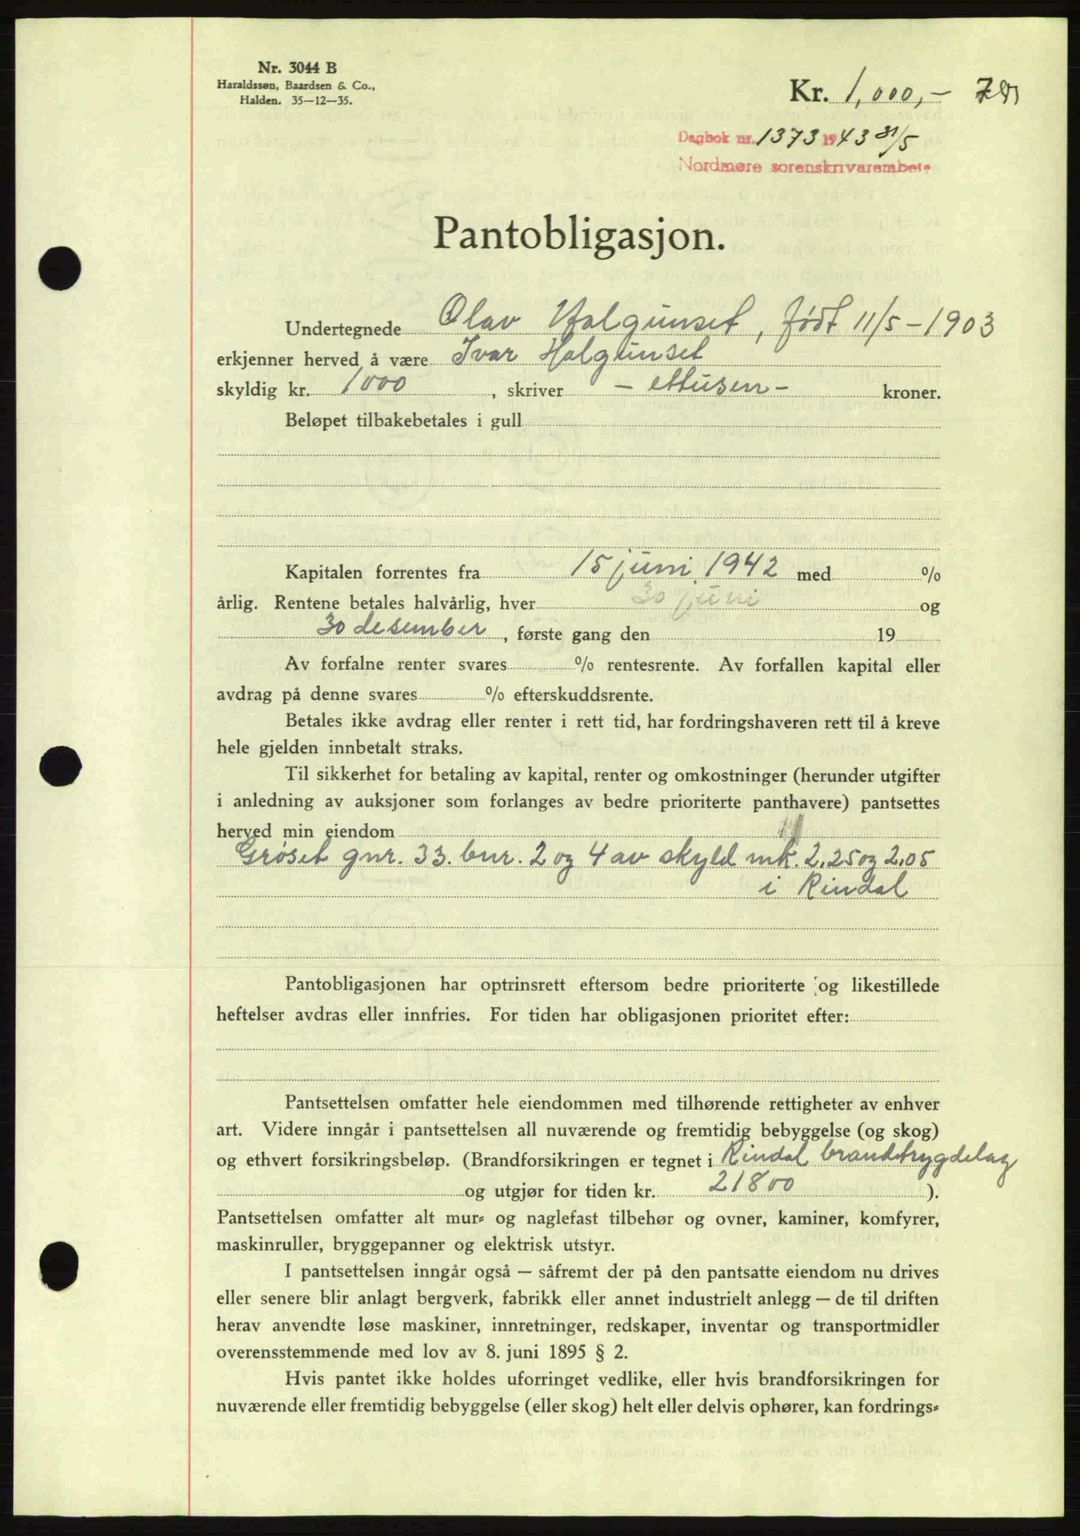 Nr. 3044 B
Haraldssøn, Baardsen & Co.,
Halden. 35—12—35.
Kr. 1,000,-
Dagbok nr. 1373 1943 31/5
Nordmøre sorenskrivarembete
Pantobligasjon.
Undertegnede Olav Halgunset, født 11/5 - 1903
erkjenner herved å være Ivar Halgunset
skyldig kr. 1000, skriver - ettusen - kroner.
Beløpet tilbakebetales i gull
Kapitalen forrentes fra 15 juni 1942 med %
årlig. Rentene betales halvårlig, hver 30 juni og
30 desember, første gang den 19
Av forfalne renter svares % rentesrente. Av forfallen kapital eller
avdrag på denne svares % efterskuddsrente.
Betales ikke avdrag eller renter i rett tid, har fordringshaveren rett til å kreve
hele gjelden innbetalt straks.
Til sikkerhet for betaling av kapital, renter og omkostninger (herunder utgifter
i anledning av auksjoner som forlanges av bedre prioriterte panthavere) pantsettes
herved min eiendom
Grøset gnr. 33. bnr. 2 og 4 av skyld mk. 2,25 og 2,05
i Rindal
Pantobligasjonen har optrinsrett eftersom bedre prioriterte og likestillede
heftelser avdras eller innfries. For tiden har obligasjonen prioritet efter:
Pantsettelsen omfatter hele eiendommen med tilhørende rettigheter av enhver
art. Videre inngår i pantsettelsen all nuværende og fremtidig bebyggelse (og skog)
og ethvert forsikringsbeløp. (Brandforsikringen er tegnet i Rindal brandtrygdelag
og utgjør for tiden kr. 21800 ).
Pantsettelsen omfatter alt mur- og naglefast tilbehør og ovner, kaminer, komfyrer,
maskinruller, bryggepanner og elektrisk utstyr.
I pantsettelsen inngår også — såfremt der på den pantsatte eiendom nu drives
eller senere blir anlagt bergverk, fabrikk eller annet industrielt anlegg — de til driften
herav anvendte løse maskiner, innretninger, redskaper, inventar og transportmidler
overensstemmende med lov av 8. juni 1895 § 2.
Hvis pantet ikke holdes uforringet vedlike, eller hvis brandforsikringen for
nuværende eller fremtidig bebyggelse (eller skog) helt eller delvis ophører, kan fordrings-